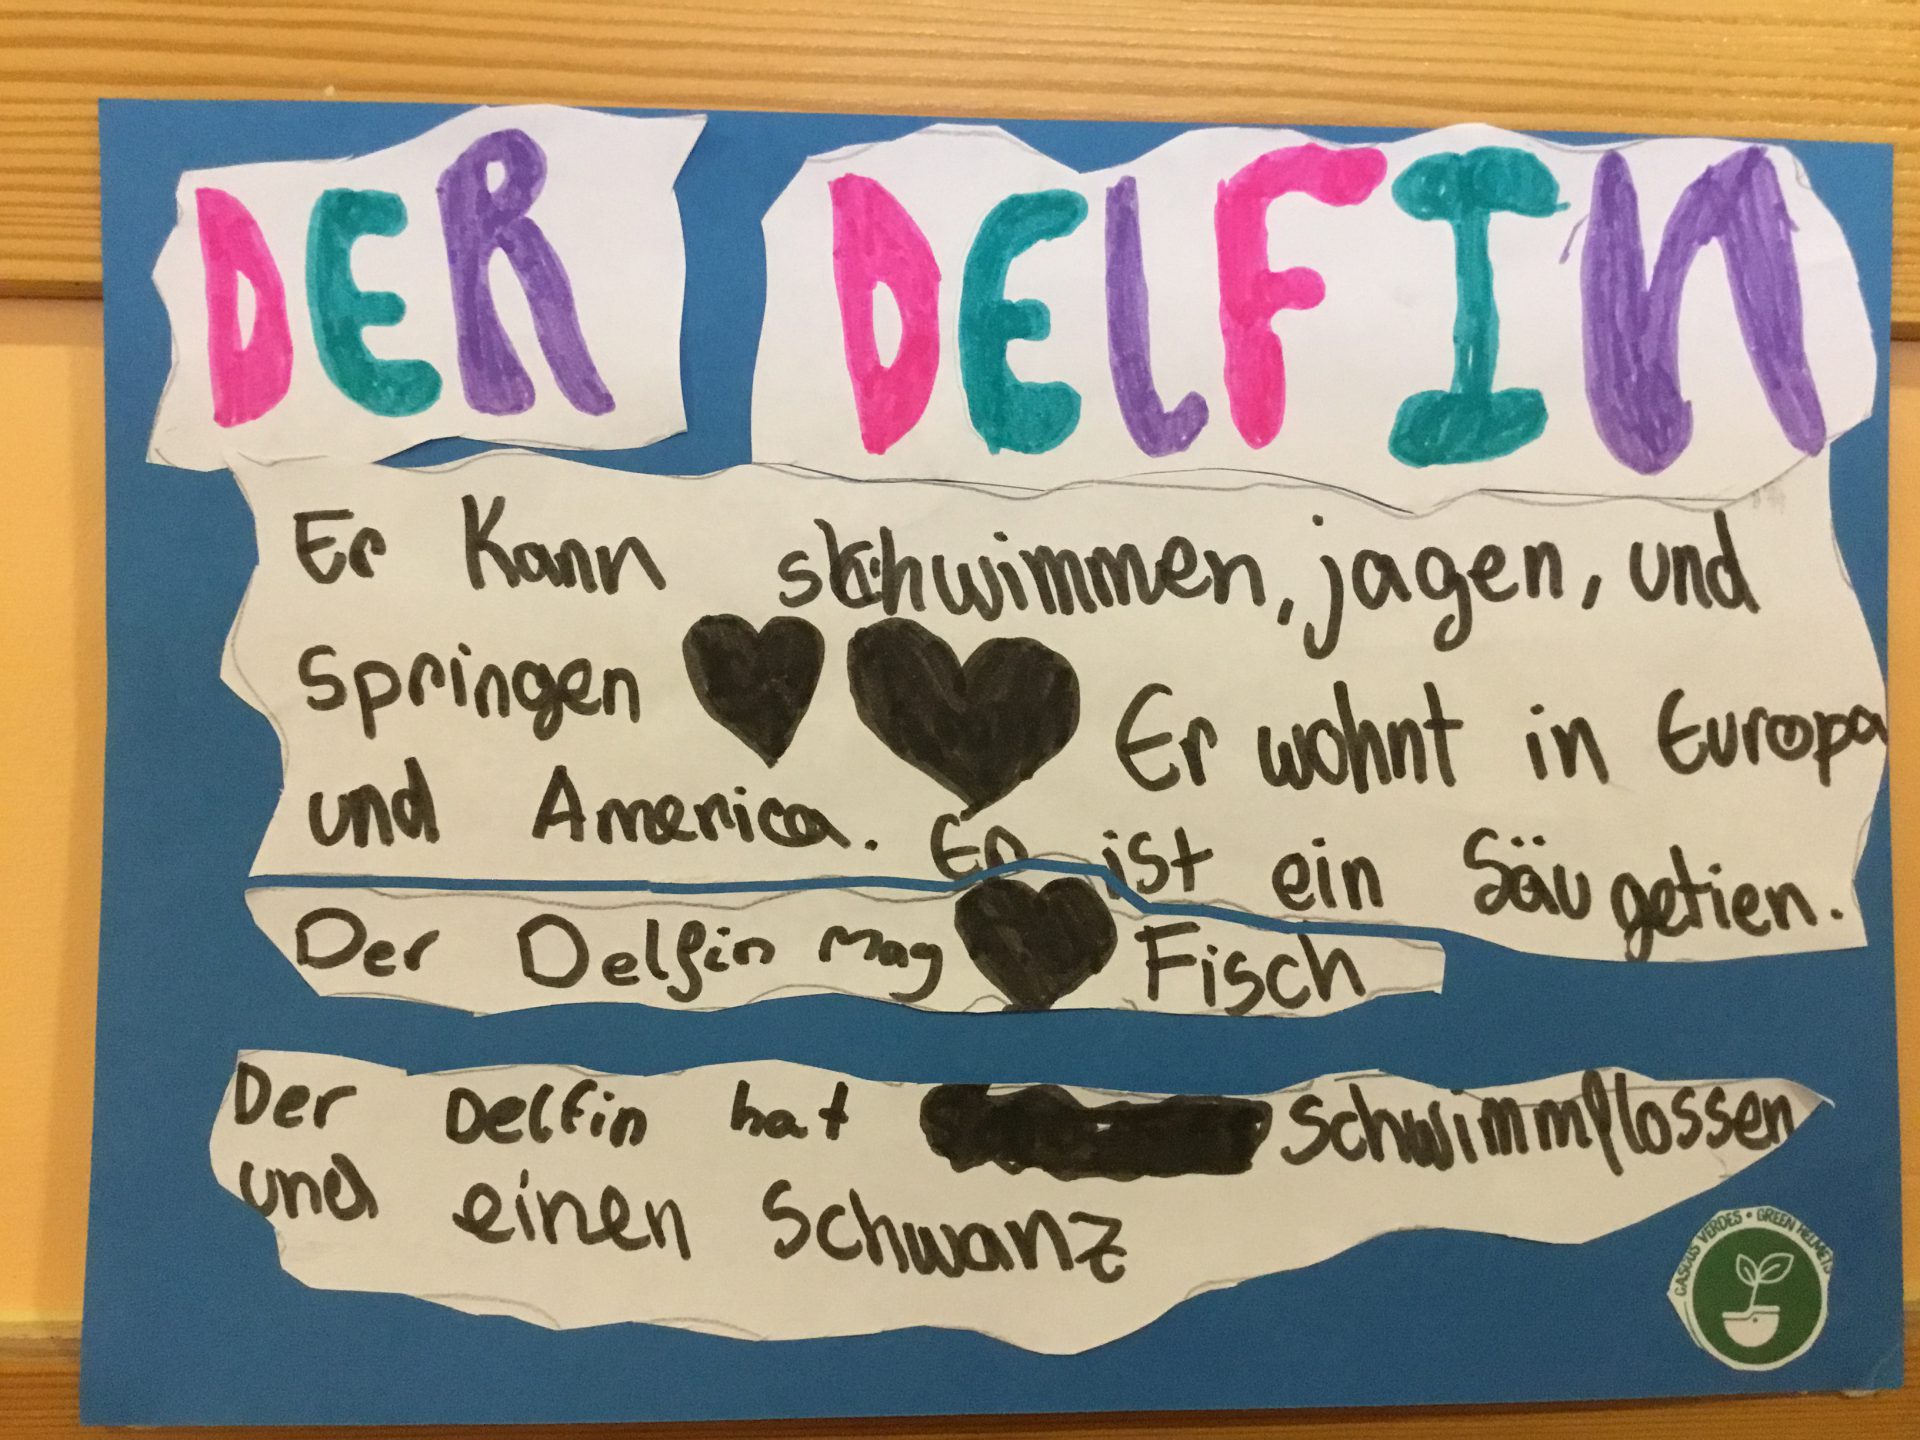 DER DELFIN
Er Kann schwimmen, jagen, und
Springen Er wohnt in Europa
und America. Er ist ein Säugetier.
Der Delfin mag Fisch
Der Delfin hat Schwimmflossen
und einen Schwanz
CASCOS VERDES • GREEN HELMETS